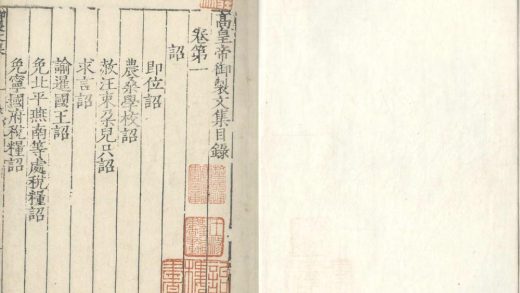 高皇帝御製文集目錄
卷第一
詔
即位詔
農桑學校詔
赦汪東朶兒只詔
求言詔
諭暹國王詔
免北平燕南等處稅糧詔
免寧國府稅糧詔